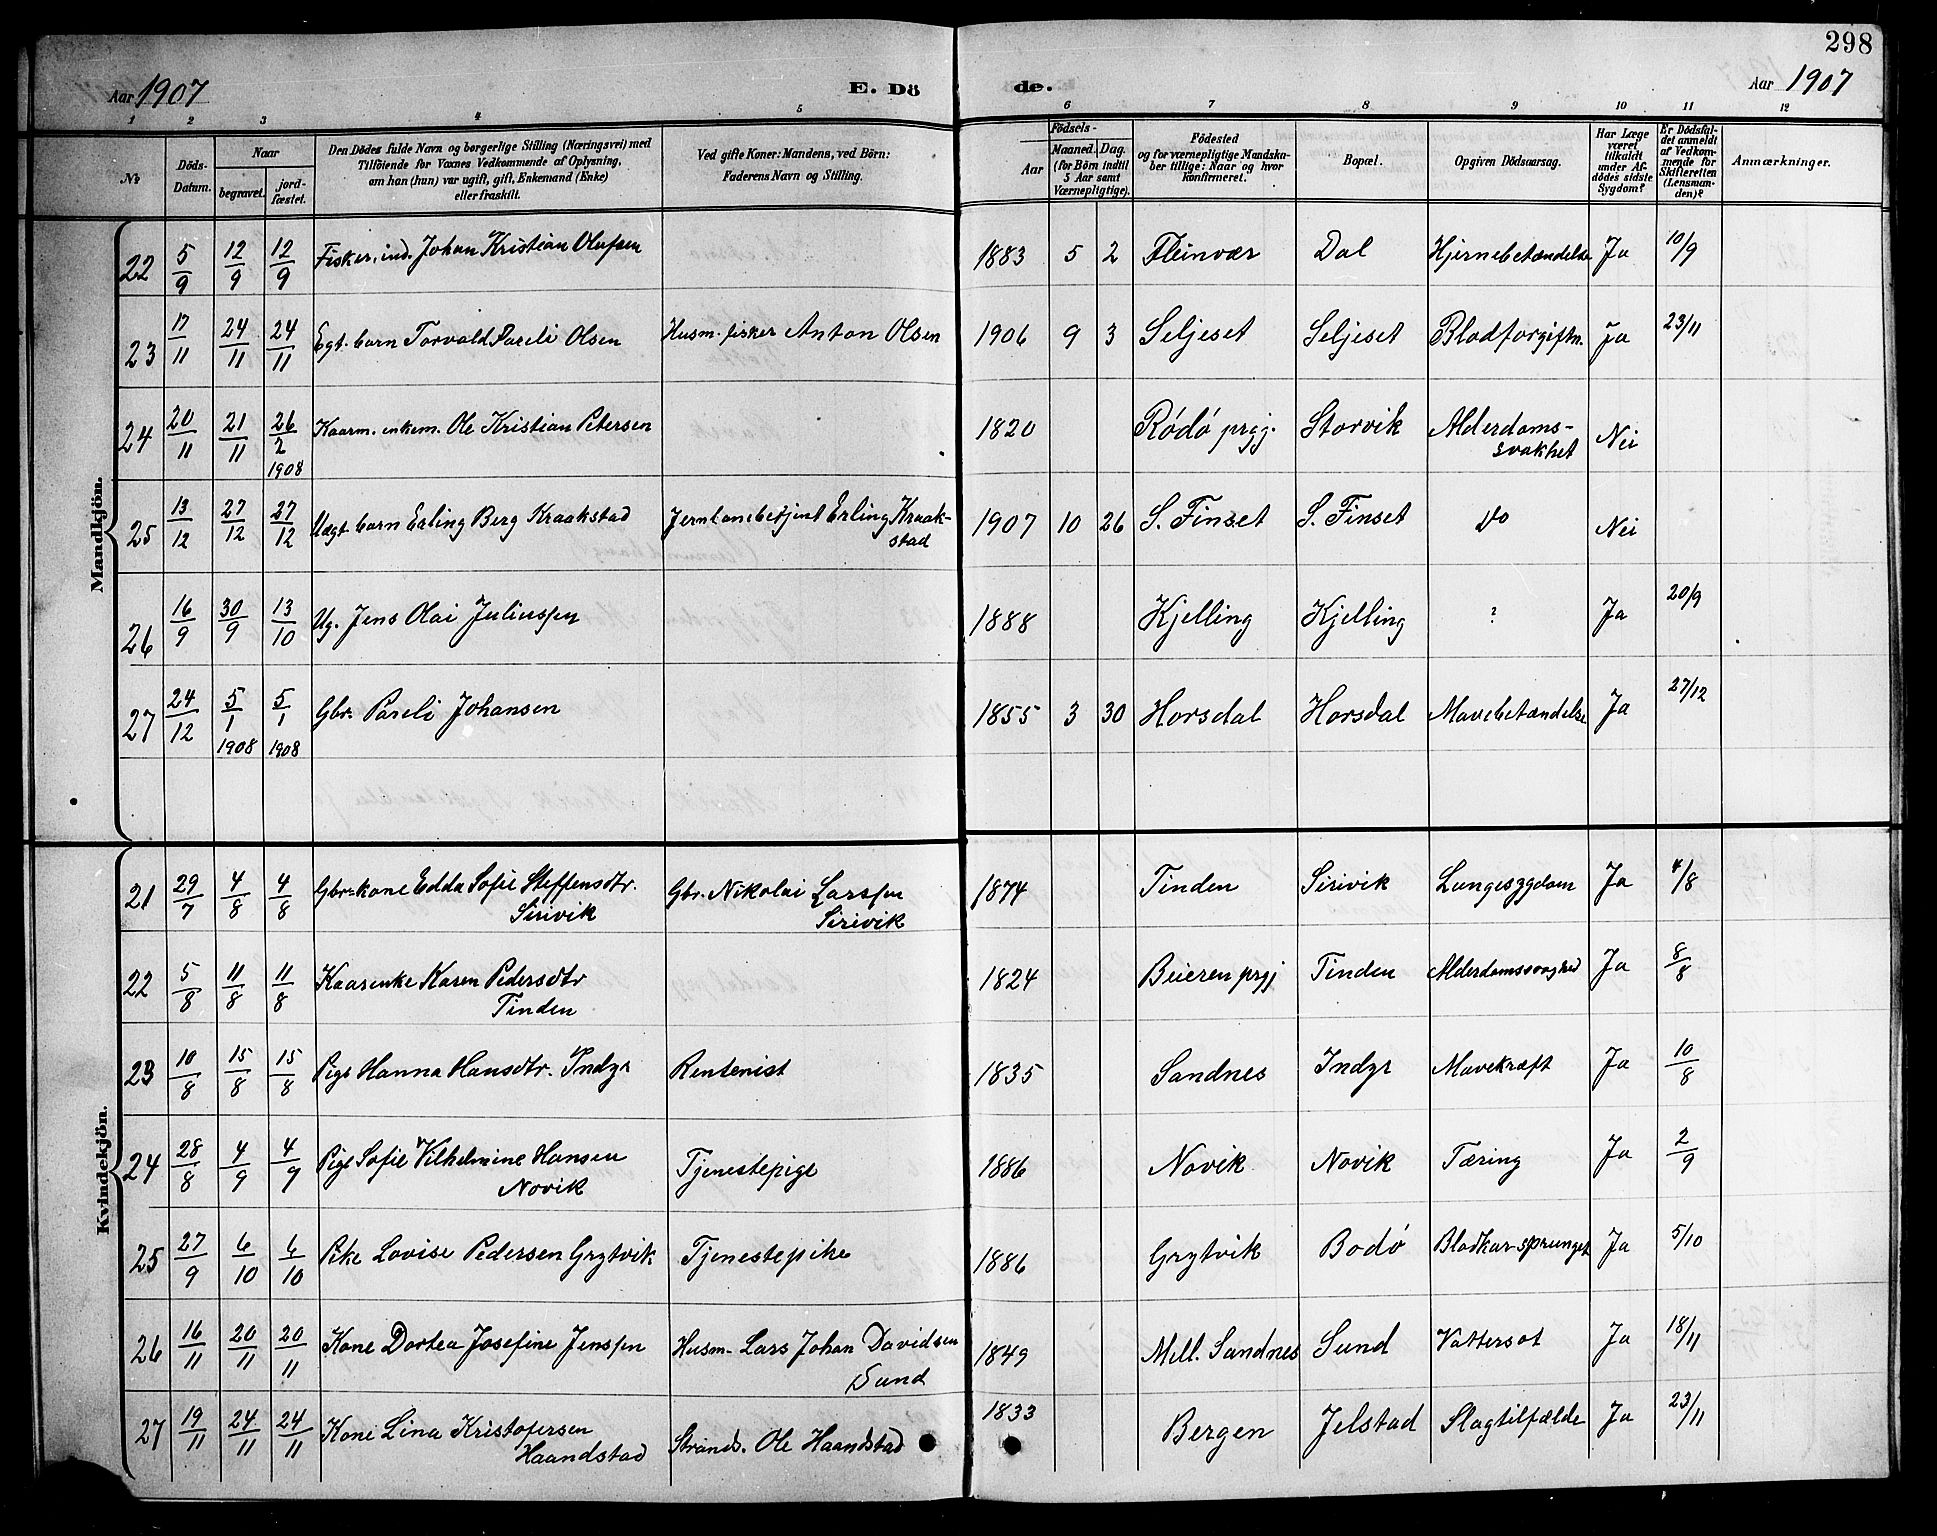 298
Aar 1907 E. Dö de. Aar 1907
1 2 3 4 5 6 7 8 9 10 11 12
№ Döds-Datum. Naar begravet. jordfæstet. Den Dödes fulde Navn og borgerlige Stilling (Næringsvei) med Tilföiende for Voxnes Vedkommende af Oplysning, om han (hun) var ugift, gift, Enkemand (Enke) eller fraskilt. Ved gifte Koner: Mandens, ved Börn: Faderens Navn og Stilling. Födsels- Aar Maaned. Dag. (for Börn indtil 5 Aar samt Værnepligtige). Födested og for værnepligtige Mandskaber tillige: Naar og hvor konfirmeret. Bopæl. Opgiven Dödsaarsag. Har Læge været tilkaldt under Afdödes sidste Sygdom? Er Dödsfaldet anmeldt af Vedkommende for Skifteretten (Lensmanden)? Anmærkninger.
Mandkjön.
22 5/9 12/9 12/9 Fisker, ind. Johan Kristian Olufsen 1883 5 2 Fleinvær Dal Hjernebetændelse Ja 10/9
23 17/11 24/11 24/11 Egt. barn Torvald Pareli Olsen Husm. fisker Anton Olsen 1906 9 3 Seljeset Seljeset Blodforgiftn. Ja 23/11
24 20/11 21/11 26/2 1908 Kaarm. enkem. Ole Kristian Petersen 1820 Rødø prgj. Storvik Alderdoms-
svakhet Nei
25 13/12 27/12 27/12 Uegt barn Erling Berg Kraakstad Jernbanebetjent Erling Kraak-
stad 1907 10 26 S. Finset S. Finset Do Nei
26 16/9 30/9 13/10 Ug. Jens Olai Juliussen 1888 Kjelling Kjelling ? Ja 20/9
27 24/12 5/1 1908 5/1 1908 Gbr. Pareli Johansen 1855 3 30 Horsdal Horsdal Mavebetændelse Ja 27/12
Kvindekjön.
21 29/7 4/8 4/8 Gbr. kone Edda Sofie Steffensdtr.
Sirivik Gbr. Nikolai Larssen
Sirivik 1874 Tinden Sirivik Lungesygdom Ja 4/8
22 5/8 11/8 11/8 Kaarenke Karen Pedersdtr
Tinden 1824 Beieren prgj Tinden Alderdomssvaghed Ja 8/8
23 10/8 15/8 15/8 Pige Hanna Hansdtr. Indyr Rentenist 1835 Sandnes Indyr Mavekræft Ja 10/8
24 28/8 4/9 4/9 Pige Sofie Vilhelmine Hansen
Novik Tjenestepige 1886 Novik Novik Tæring Ja 2/9
25 27/9 6/10 6/10 Pike Lovise Pedersen Grytvik Tjenestepike 1886 Grytvik Bodø Blodkar sprunget Ja 5/10
26 16/11 20/11 20/11 Kone Dortea Josefine Jenssen Husm. Lars Johan Davidsen
Sund 1849 Mell. Sandnes Sund Vattersot Ja 18/11
27 19/11 24/11 24/11 Kone Lina Kristofersen
Haandstad Strands. Ole Haandstad 1833 Bergen Jelstad Slagtilfælde Ja 23/11